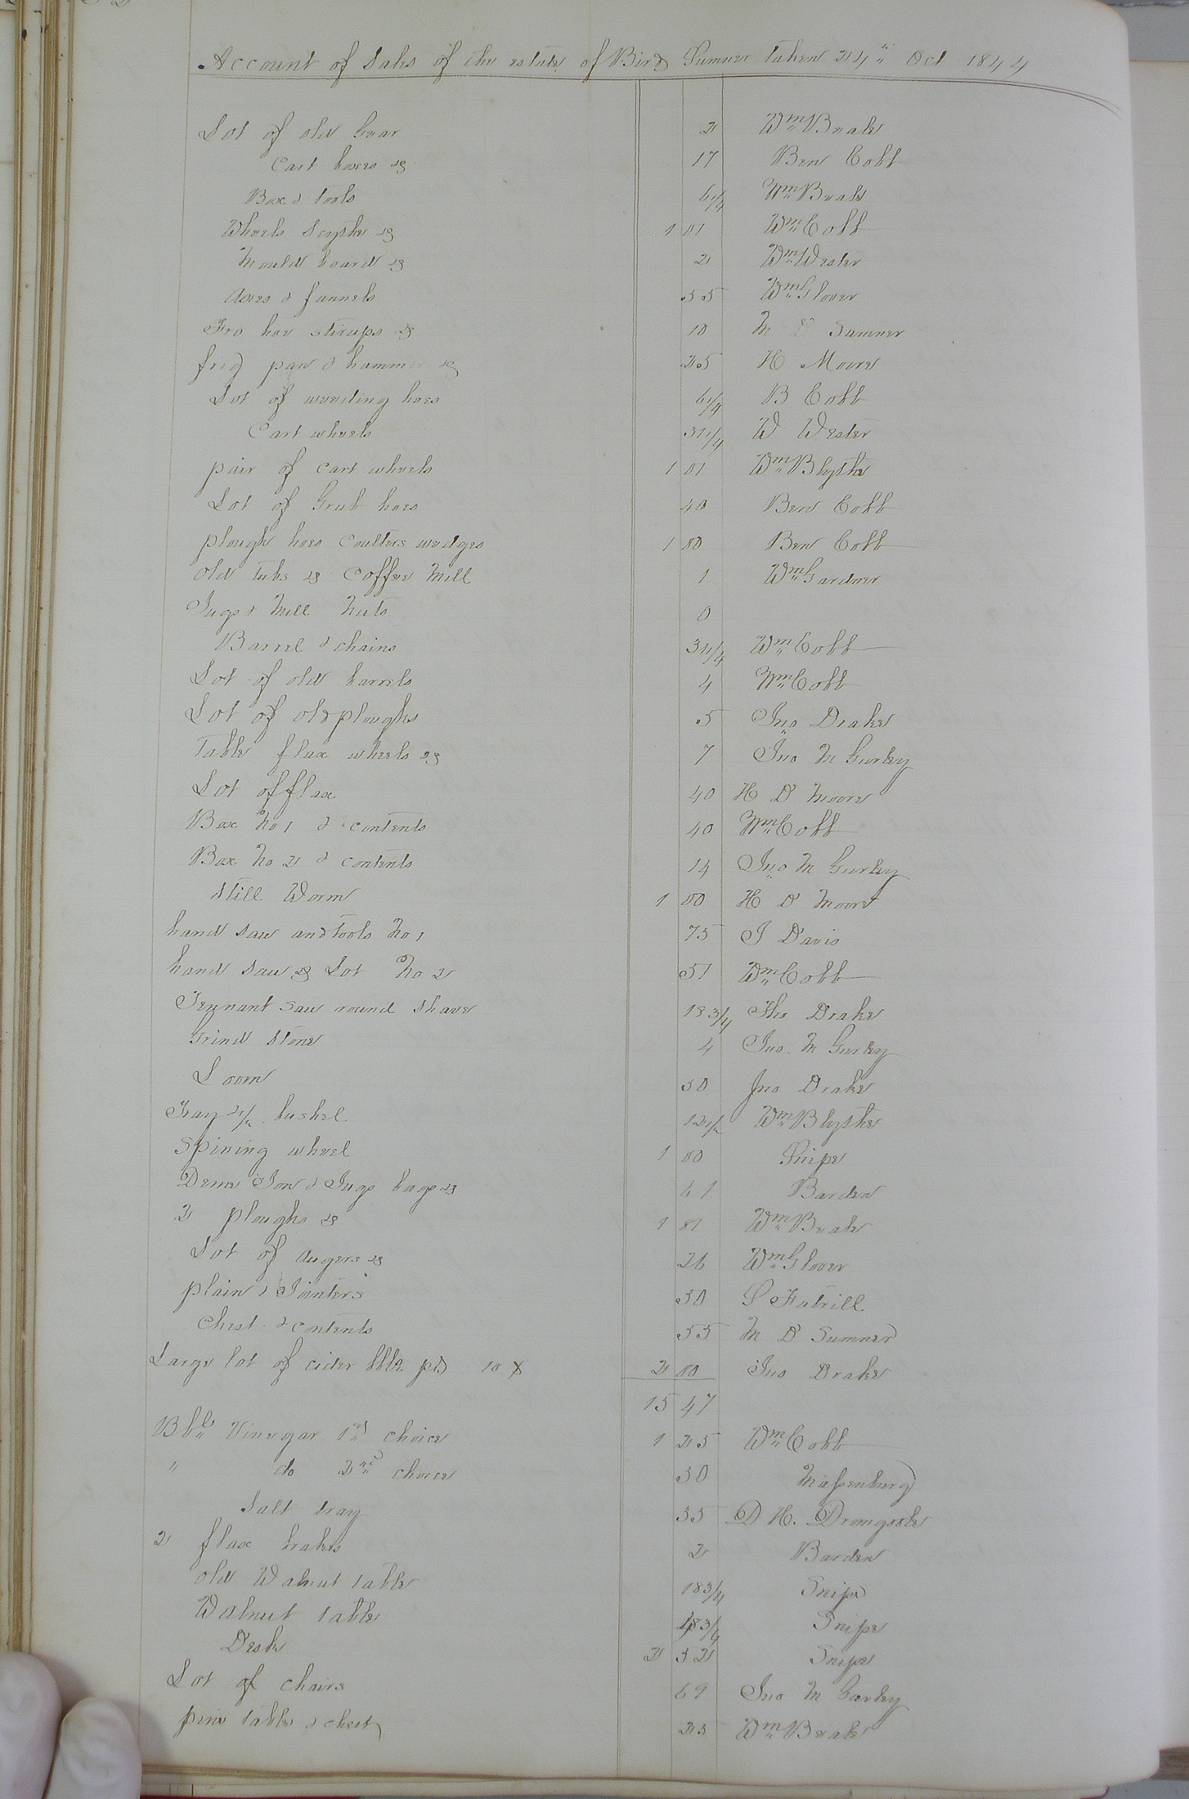 Account of Sales of the estate of Bird Sumner taken 24th Oct 1844
Lot of old Gear 2 Wm Beale
Cart boxes &c 17 Ben Cobb
Box & tools 6 1/4 Wm Beale
Wheels Scythe &c 1 01 Wm Cobb
Mould board &c 2 Wm Wester
Axes & funnels 55 Wm Glover
Fro hoe stirups &c 10 M D Sumner
fry pan & hammer &c 25 H Moore
Lot of weeding hoes 6 1/4 B Cobb
Cart wheels 31 1/4 W Wester
pair of cart wheels 1 01 Wm Blythe
Lot of Grub hoes 40 Ben Cobb
plough hoes coulters wedges 1 80 Ben Cobb
old tubs &c Coffee Mill 1 Wm Gardner
Jugs & Mill 0
Barrel & chains 31 1/4 Wm Cobb
Lot of old barrels 4 Wm Cobb
Lot of old ploughs 5 Jno Drake
Table flax wheels &c 7 Jno M Gurley
Lot of flax 40 H D Moore
Box No 1 & contents 40 Wm Cobb
Box No 2 & contents 14 Jno M Gurley
Still Worm 1 00 H D Moore
hand saw and Tools No 1 75 J Davis
hand saw &c Lot No 2 51 Wm Cobb
Tennant saw round shave 18 3/4 Jno Drake
Grind stone 4 Jno. M Gurley
Loom 50 Jno Drake
Tray 1/2 bushel 12 1/2 Wm Blythe
Spining wheel 1 00 Snipe
Demi Jon & Jugs bags &c 61 Barden
2 ploughs &c 1 81 Wm Beale
Lot of augers &c 26 Wm Glover
plain & Jointers 50 S Futrill
Chest & contents 55 M D Sumner
Large lot of cider bbls pd 10 2 00 Jno Drake
15 47
Bbls Vinegar 1st choice 1 25 Wm Cobb
" do 2nd choice 50 Massenburg
Salt tray 35 D H. Dromgoole
2 flax brakes 2 Barden
old Walnut table 18 3/4 Snipe
Walnut table 18 3/4 Snipe
Desk 2 52 Snipe
Lot of chairs 69 Jno M Gurley
pine table & chest 25 Wm Beale